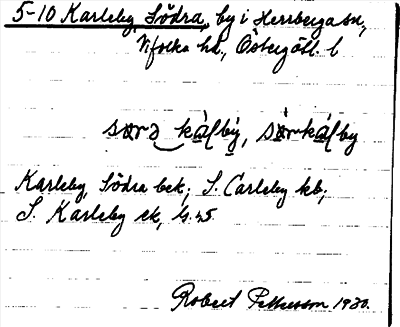 5-10 Karleby, Södra, by i Herrberga sn,
Vifolka hd., Östergötl. l
særə kálby, sœrkálby
Karleby, Södra bek; S. Carleby kb;
S. Karleby ek,
Robert Pettersson 1930.